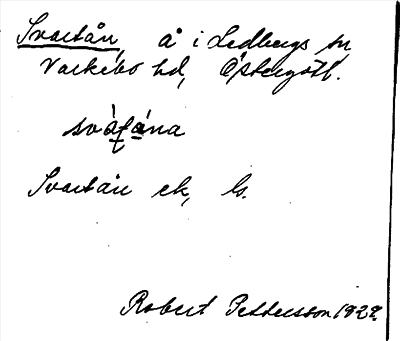 Svartån, å i Ledbergs sn
Valkebo hd, Östergötl.
svàţána
Svartån ek, ls.
Robert Pettersson 1922.